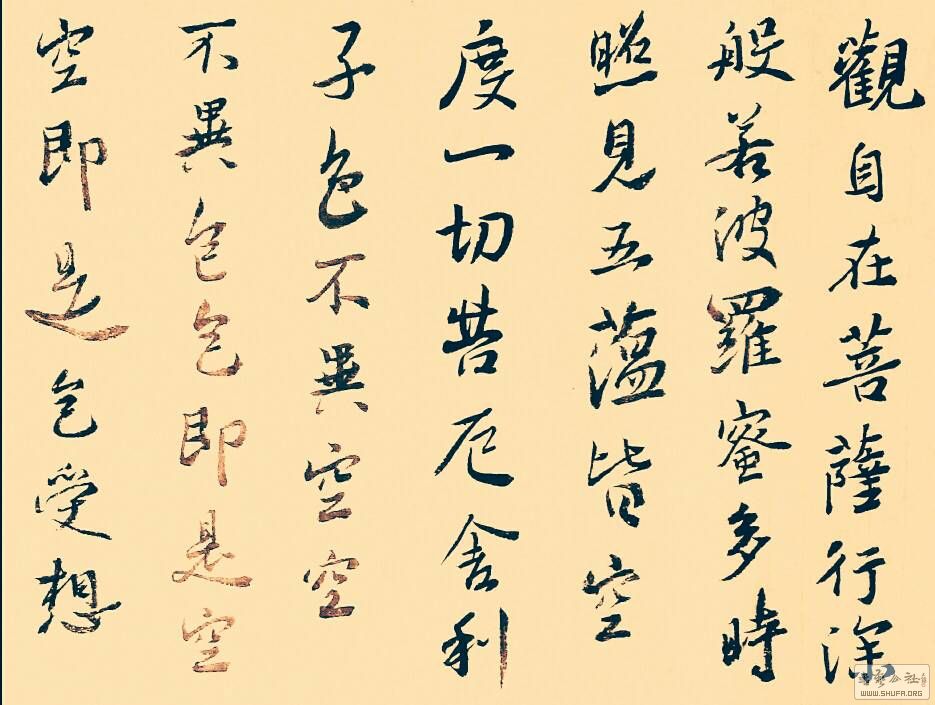 觀自在菩薩行深
般若波羅蜜多時
照見五蘊皆空
度一切苦厄舍利
子色不異空空
不異色色即是空
空即是色受想
WWW.SHUFA.ORG